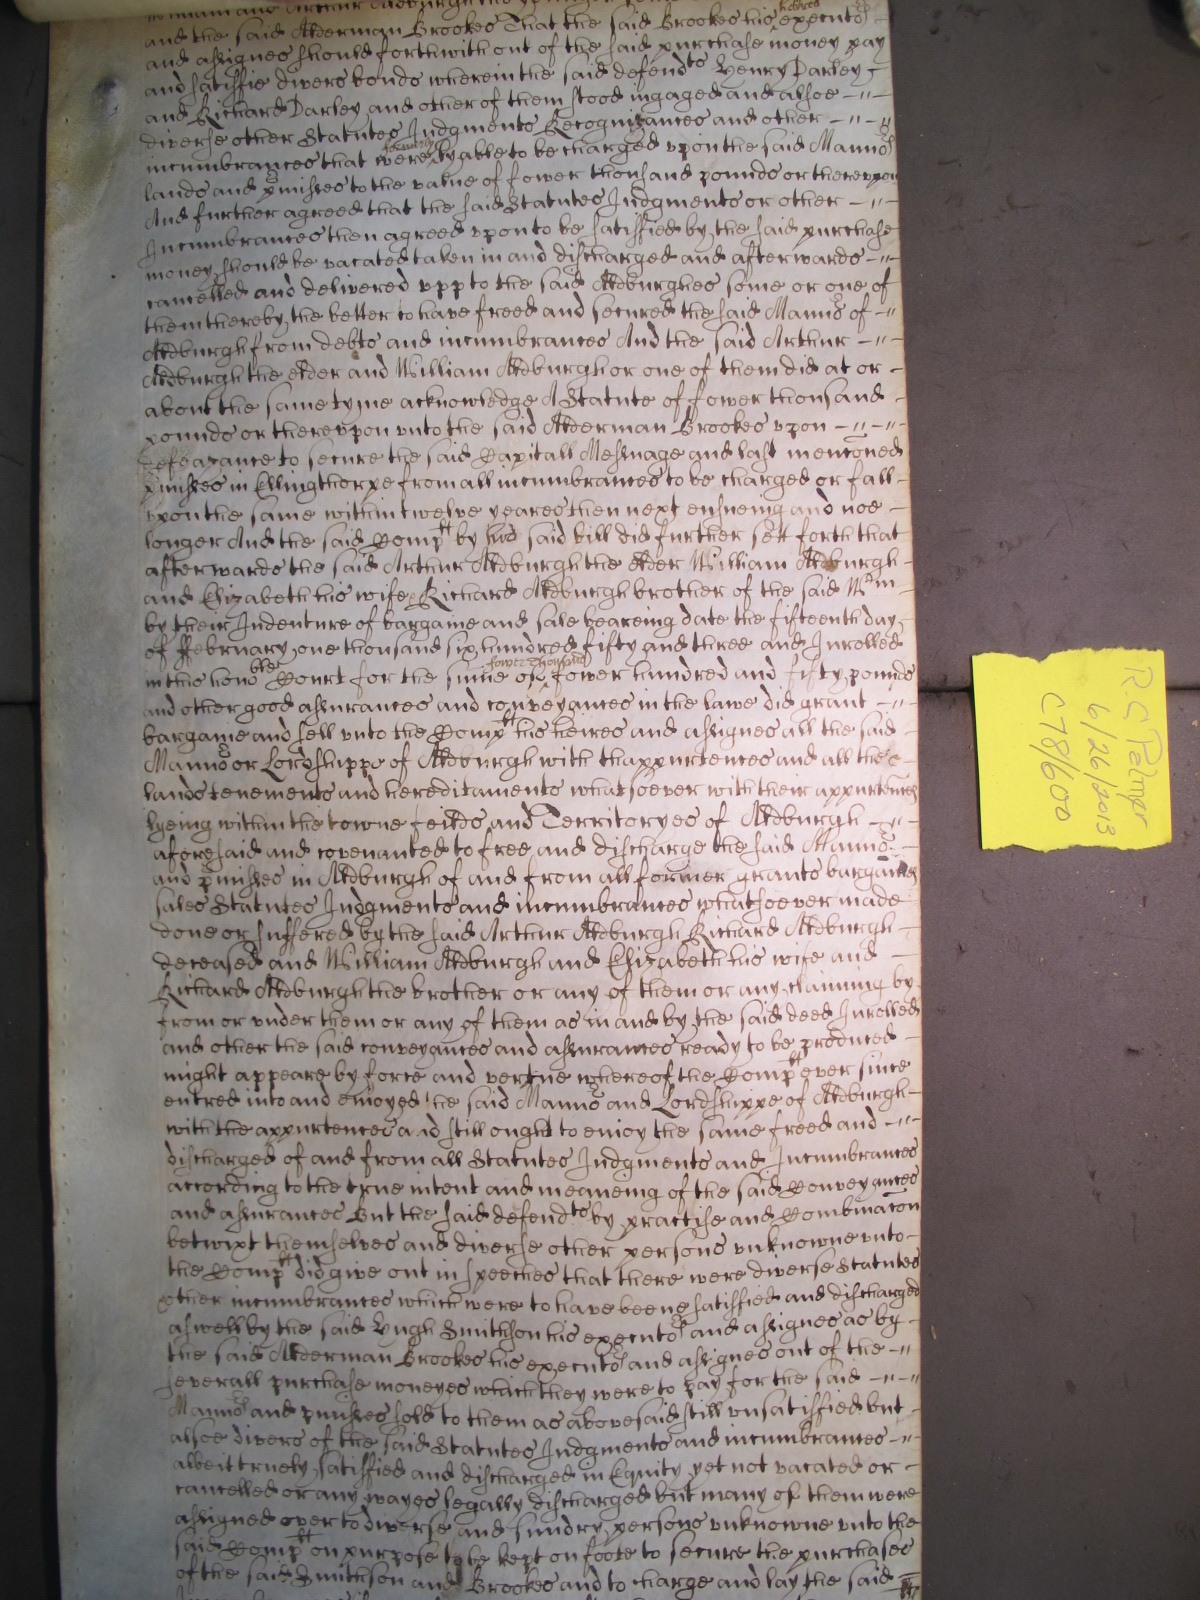 and the said Alderman Brookes That the said Brookes his heires executors
and assignes should forthwith out of the said purchase money pay
and satisfie divers bonds wherein the said defendts Henry Darley
and Richard Darley and other of them stood ingaged and alsoe
diverse other Statutes Judgments Recognizances and other
incumbrances that were formerly lyable to be charged upon the said Mannor
lands and pmisses to the value of fower thousand pounds or thereupon
And further agreed that the said Statutes Judgments or other
Incumbrances then agreed upon to be satisfied by the said purchase
money should be vacated taken in and discharged and afterwards
cancelled and delivered upp to the said Aldburghes some or one of
them thereby the better to have freed and secured the said Mannor of
Aldburgh from debts and incumbrances And the said Arthur
Aldburgh the elder and William Aldburgh or one of them did at or
about the same tyme acknowledge A Statute of fower thousand
pounds or thereupon unto the said Alderman Brookes upon
defeazance to secure the said Capitall Messuage and last mentioned
pmisses in Ellingthorpe from all incumbrances to be charged or fall
upon the same within twelve yeares then next ensueing and noe
longer And the said Complt by his said bill did further sett forth that
afterwards the said Arthur Aldburgh the elder William Aldburgh
and Elizabeth his wife Richard Aldburgh brother of the said Wm
by their Indenture of bargaine and sale beareing date the fifteenth day
of ffebruary one thousand six hundred fifty and three and Inrolled
in this honoble Court for the sume of fower thousand fower hundred and fifty pounds
and other good assurances and conveyances in the lawe did grant
bargaine and sell unto the Complt his heires and assignes all the said
Mannor or Lordshippe of Aldburgh with thappurtences and all the
lands tenements and hereditaments whatsoever with their appurtences
lyeing within the towne feilds and Territoryes of Aldburgh
aforesaid and covenanted to free and discharge the said Mannor
and pmisses in Aldburgh of and from all former grants bargaines
sales Statutes Judgments and incumbrances whatsoever made
done or suffered by the said Arthur Aldburgh Richard Aldburgh
deceased and William Aldburgh and Elizabeth his wife and
Richard Aldburgh the brother or any of them or any claiming by
from or under them or any of them as in and by the said deed Inrolled
and other the said conveyances and assurances ready to be produced
might appeare by force and vertue whereof the Complt ever since
entred into and enioyed the said Mannor and Lordshippe of Aldburgh
with the appurtences and still ought to enjoy the same freed and
discharged of and from all Statutes Judgments and Incumbrances
according to the true intent and meaneing of the said Conveyances
and assurances But the said defendts by practise and Combinacon
betwixt themselves and diverse other persons unknowne unto
the Complt did give out in speeches that there were diverse Statutes
other incumbrances which were to have beene satisfied and discharged
aswell by the said Hugh Smithson his executors and assignes as by
the said Alderman Brookes his executors and assignes out of the
severall purchase moneyes which they were to pay for the said
Mannors and pmisses sold to them as abovesaid still unsatisfied but
alsoe divers of the said Statutes Judgments and incumbrances
albeit truely satisfied and discharged in Equity yet not vacated or
cancelled or any wayes legally discharged but many of them were
assigned over to diverse and sundry persons unknowne unto the
said Complt on purpose to be kept on foote to secure the purchases
of the said Smithson and Brookes and to charge and lay the said
R.C Palmer
6/26/2013
C78/600